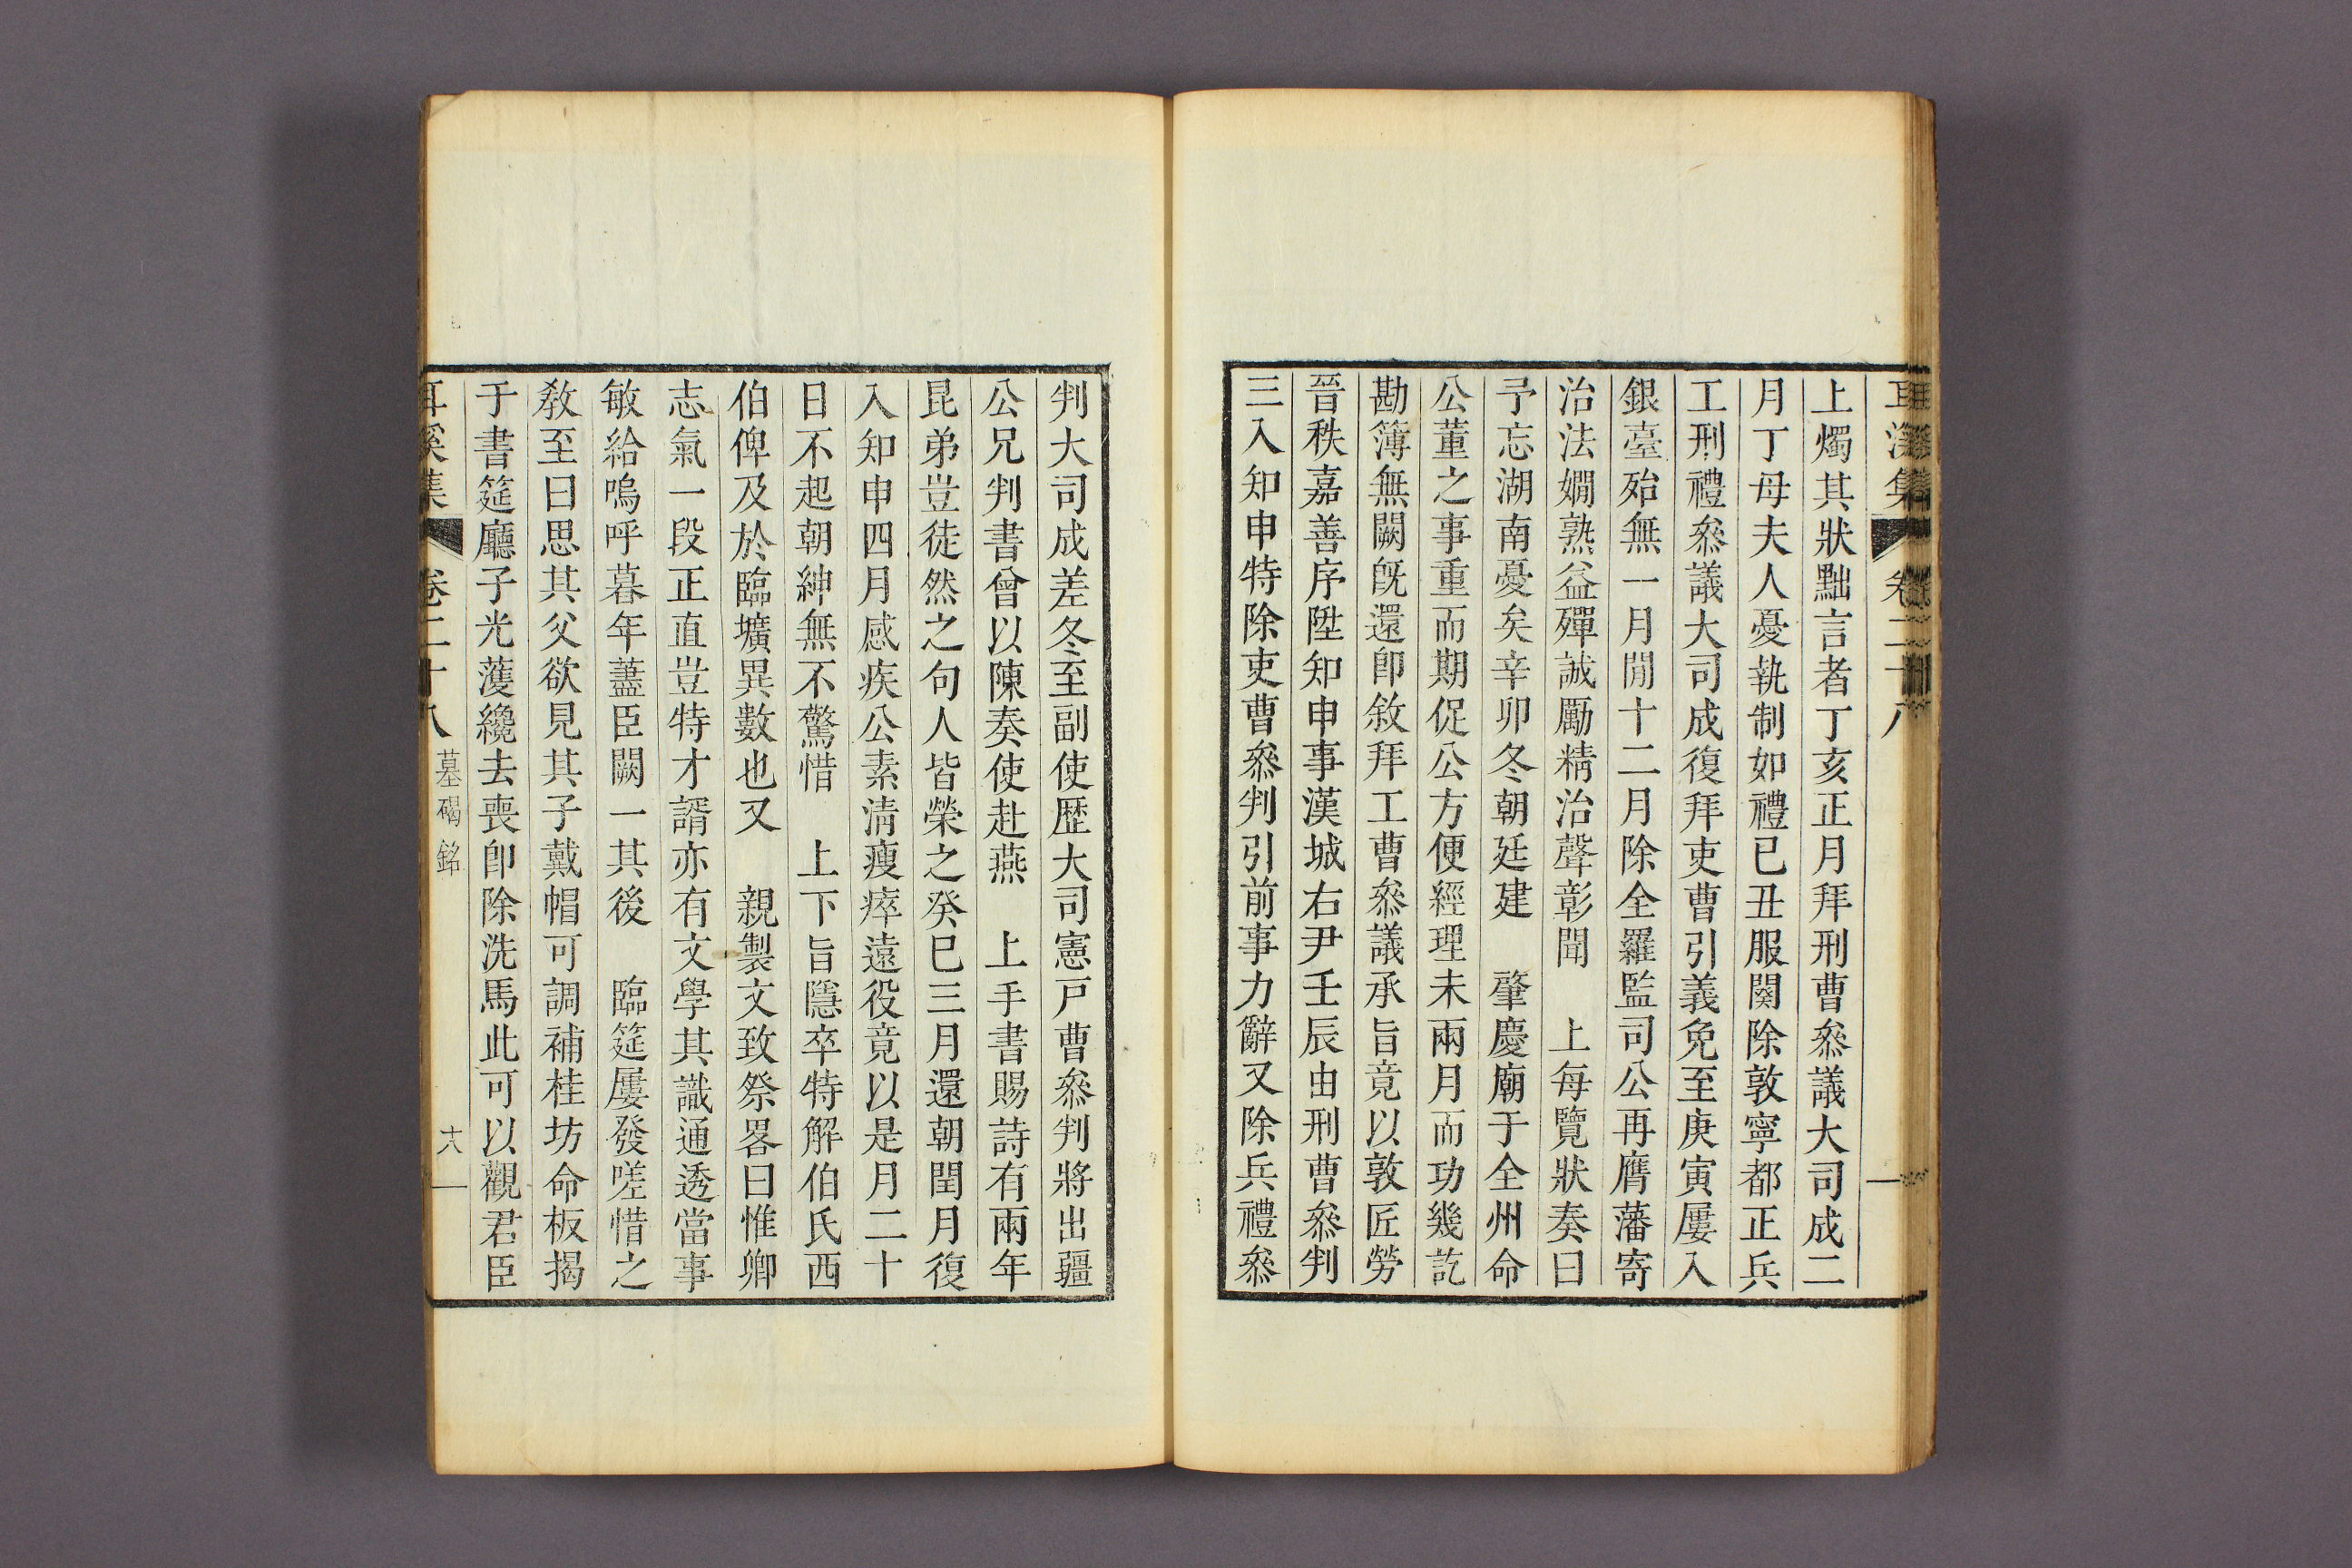 耳溪集 卷二十八
上燭其狀黜言者丁亥正月拜刑曹叅議大司成二
月丁母夫人憂執制如禮已丑服闋除敦寧都正兵
工刑禮叅議大司成復拜吏曹引義免至庚寅屢入
銀臺殆無一月閒十二月除全羅監司公再膺藩寄
治法嫺熟益殫誠勵精治聲彰聞　上每覽狀奏曰
予忘湖南憂矣辛卯冬朝廷建　肇慶廟于全州命
公董之事重而期促公方便經理未兩月而功幾訖
勘簿無闕旣還卽敘拜工曹叅議承旨竟以敦匠勞
晉秩嘉善序陞知申事漢城右尹壬辰由刑曹叅判
三入知申特除吏曹叅判引前事力辭又除兵禮叅
判大司成差冬至副使歷大司憲戶曹叅判將出疆
公兄判書曾以陳奏使赴燕　上手書賜詩有兩年
昆弟豈徒然之句人皆榮之癸巳三月還朝閏月復
入知申四月感疾公素淸瘦瘁遠役竟以是月二十
日不起朝紳無不驚惜　上下旨隱卒特解伯氏西
伯俾及於臨壙異數也又　親製文致祭畧曰惟卿
志氣一段正直豈特才諝亦有文學其識通透當事
敏給嗚呼暮年藎臣闕一其後　臨筵屢發嗟惜之
敎至曰思其父欲見其子戴帽可調補桂坊命板揭
于書筵廳子光濩纔去喪卽除洗馬此可以觀君臣
耳溪集 卷二十八 墓碣銘 十八